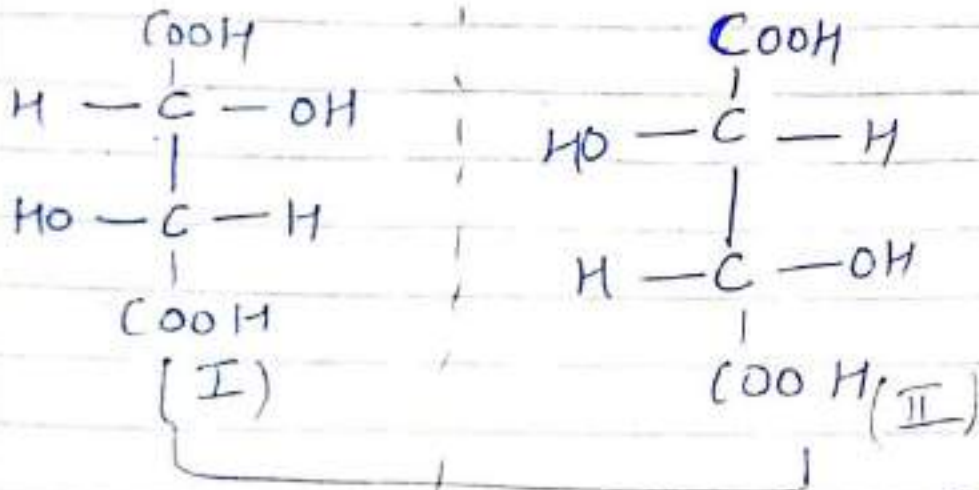 COOH
H — C — OH
HO — C — H
COOH
(I)
COOH
HO — C — H
H — C — OH
COOH (II)